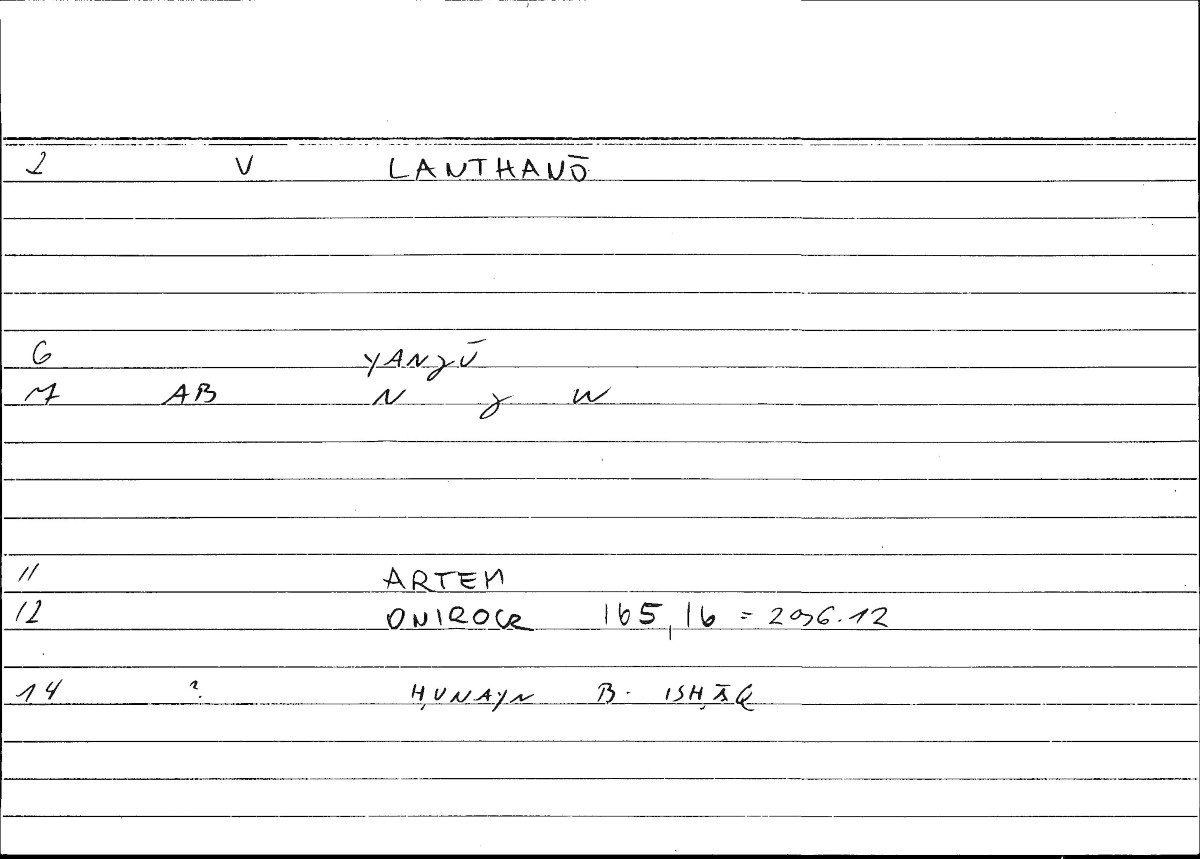 2 V LANTHANŌ
6 YANȜŪ
7 AB N Ȝ W
11 ARTEM
12 ONIROCR 165,16 = 296.12
14 ? ḤUNAYN B. ISḤĀQ